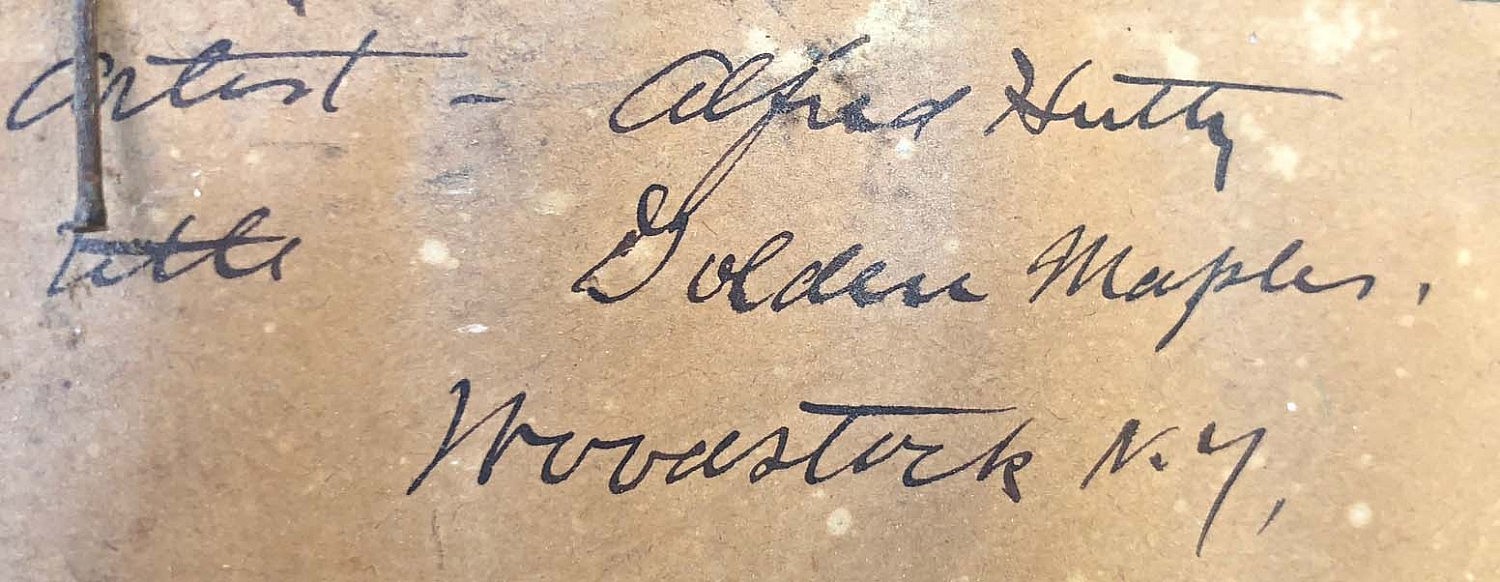 Artist - Alfred Hutty
Title Golden Maples.
Woodstock N.Y,